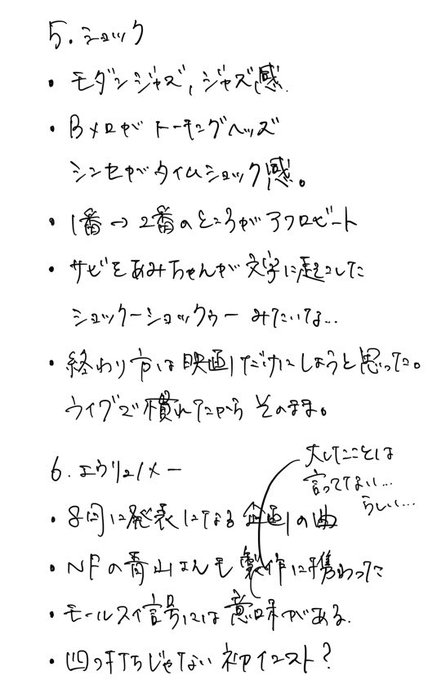 5. ショック
・モダンジャズ, ジャズ感.
・Bメロがトーキングヘッズ
シンセがタイムショック感。
・1番→2番のところがアフロビート
・サビをあみちゃんが文字に起こした
ショックーショックゥー みたいな...
・終わり方は映画1だけにしようと思った。
ライブで慣れたからそのまま。
6. エウリュノメー
大したことは
言ってない...
らしい...
・8回に発表になる企画の曲
・NFの青山さんも製作に携わった
・モールス信号には意味がある.
・四つ打ちじゃない初インスト?